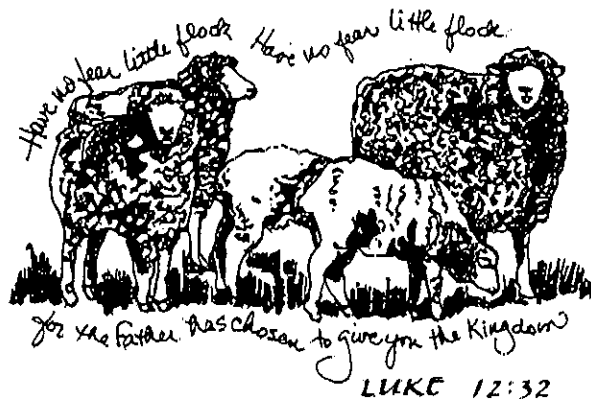 Have no fear little flock Have no fear little flock
for the Father has chosen to give you the Kingdom
LUKE 12:32